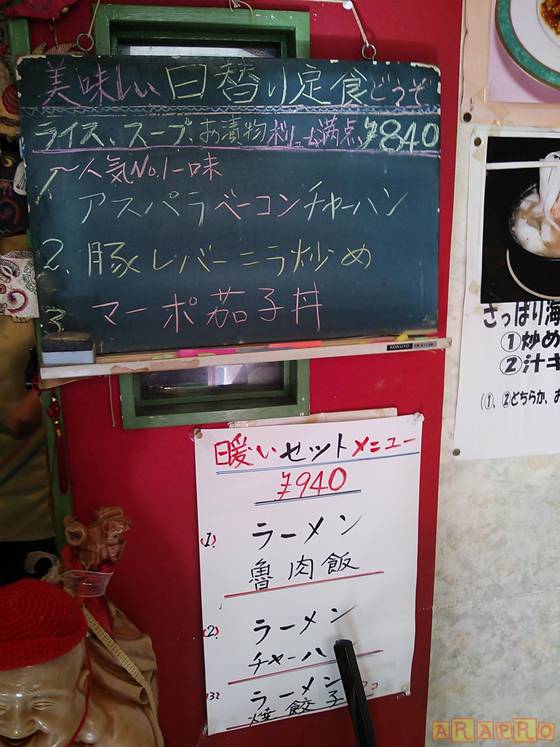 美味しい日替り定食どうぞ
ライス、スープ、お漬物ボリューム満点¥840
〜人気No.1一味
1 アスパラベーコンチャーハン
2. 豚レバーニラ炒め
3 マーポ茄子丼
KOKUYO
暖いセットメニュー
¥940
(1) ラーメン
魯肉飯
(2) ラーメン
チャーハ
(3) ラーメン
焼餃子
さっぱり海
①炒め
②汁
(①、②どちらか、お
ARAPRO